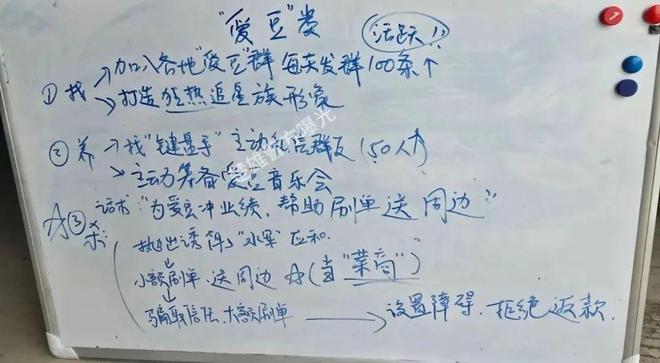 "爱豆"类
活跃!!
①找→加入各地"爱豆"群 每天发群100条↑
→打造狂热追星族形象
②养→找"键盘手"主动私信群友(50人↑)
→主动筹备爱豆音乐会
☆③杀: 话术:"为爱豆冲业绩,帮助刷单送周边"
抛出诱饵,"水军"应和.
↓
小额刷单,送周边 ☆(当"菜商")
↓
骗取信任,大额刷单 → 设置障碍,拒绝返款.